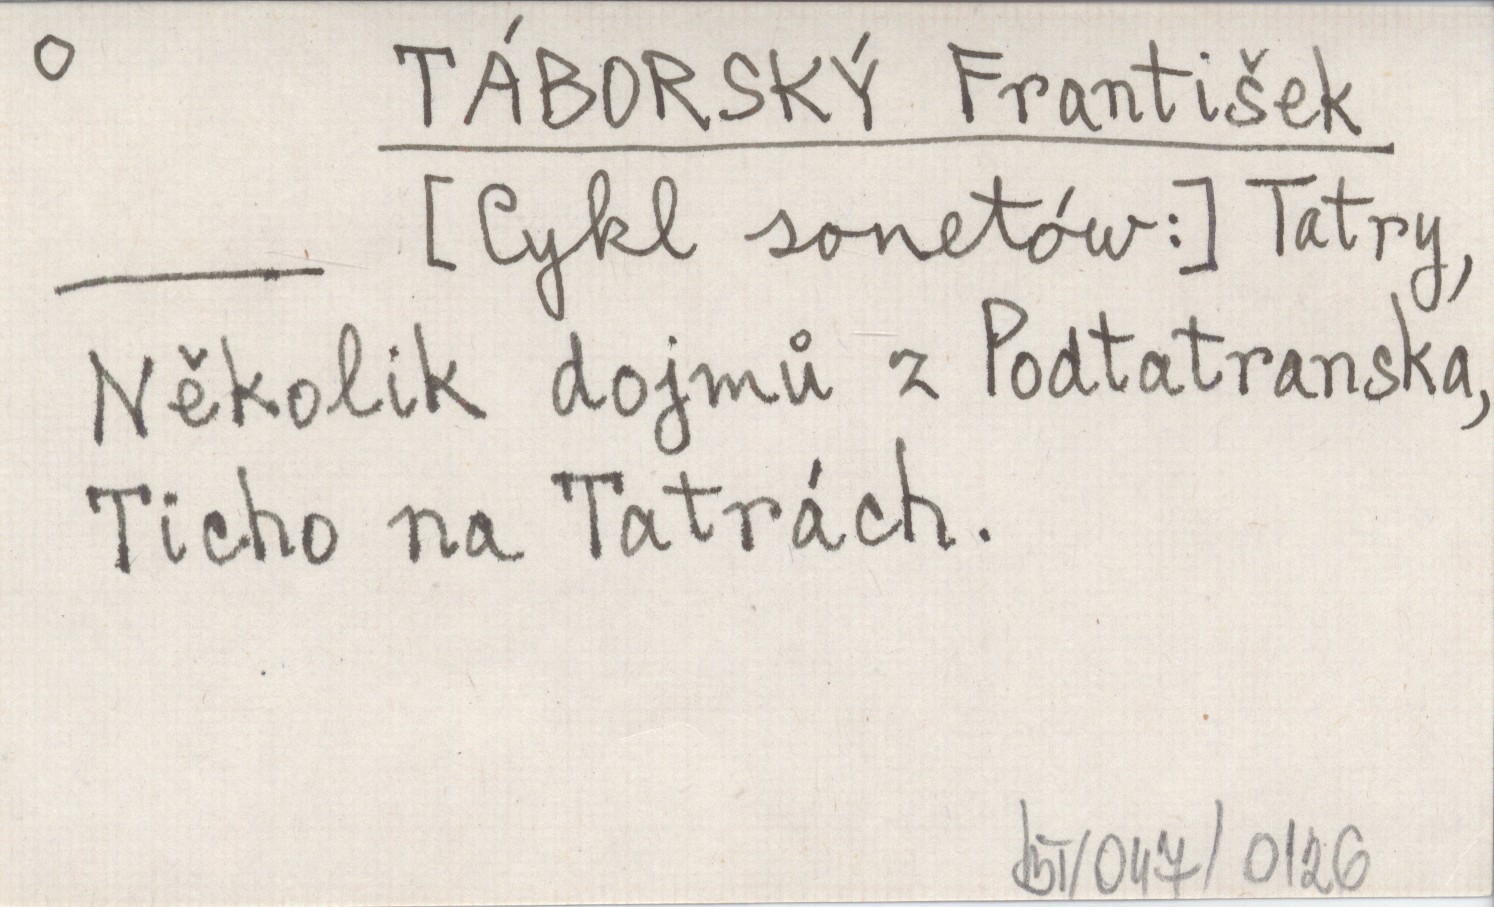 O TÁBORSKÝ František
[Cykl sonetów:] Tatry,
Několik dojmů z Podtatranska,
Ticho na Tatrách.
/047/ 0126